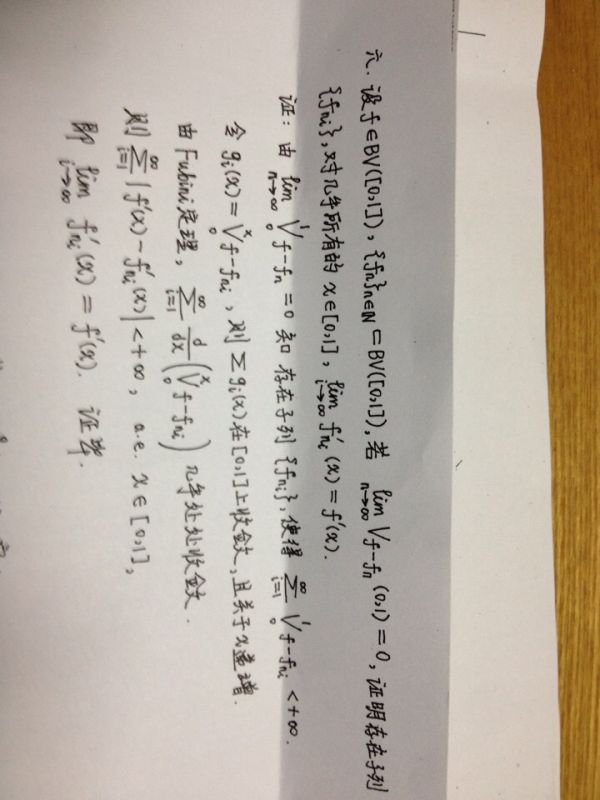 六. 设 f∈BV([0,1]), {fn}n∈N ⊂ BV([0,1]), 若 lim n→∞ V f-fn (0,1) = 0, 证明存在子列
{fni}, 对几乎所有的 x∈[0,1], lim i→∞ f'ni(x) = f'(x).
证: 由 lim n→∞ V₀¹ f-fn = 0 知 存在子列 {fni}, 使得 ∑ i=1 ∞ V₀¹ f-fni < +∞.
令 gi(x) = V₀ˣ f-fni, 则 ∑ gi(x) 在[0,1]上收敛, 且关于x递增.
由 Fubini定理, ∑ i=1 ∞ d/dx (V₀ˣ f-fni) 几乎处处收敛.
则 ∑ i=1 ∞ |f'(x) - f'ni(x)| < +∞, a.e. x∈[0,1],
即 lim i→∞ f'ni(x) = f'(x). 证毕.